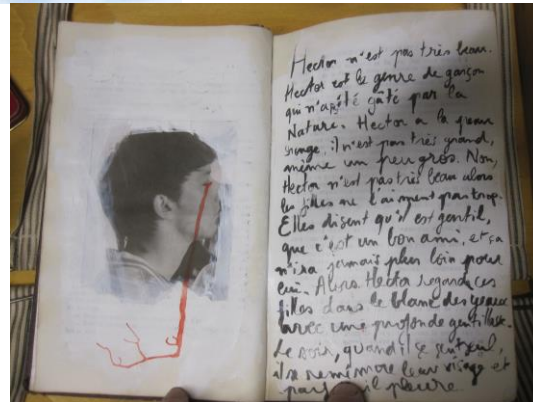 Hector n'est pas très beau.
Hector est le genre de garçon
qui n'a été gâté par la
Nature. Hector a la peau
il n'est pas très grand,
même un peu gros. Non,
Hector n'est pas très beau alors
les filles ne l'aiment pas trop.
Elles disent qu'il est gentil,
que c'est un bon ami, et ça
n'ira jamais plus loin pour
lui. Alors Hector regarde ces
filles dans le blanc des yeux
avec une profonde gentillesse.
Le soir, quand il se sent seul,
il se remémore leur visage et
parfois il pleure.